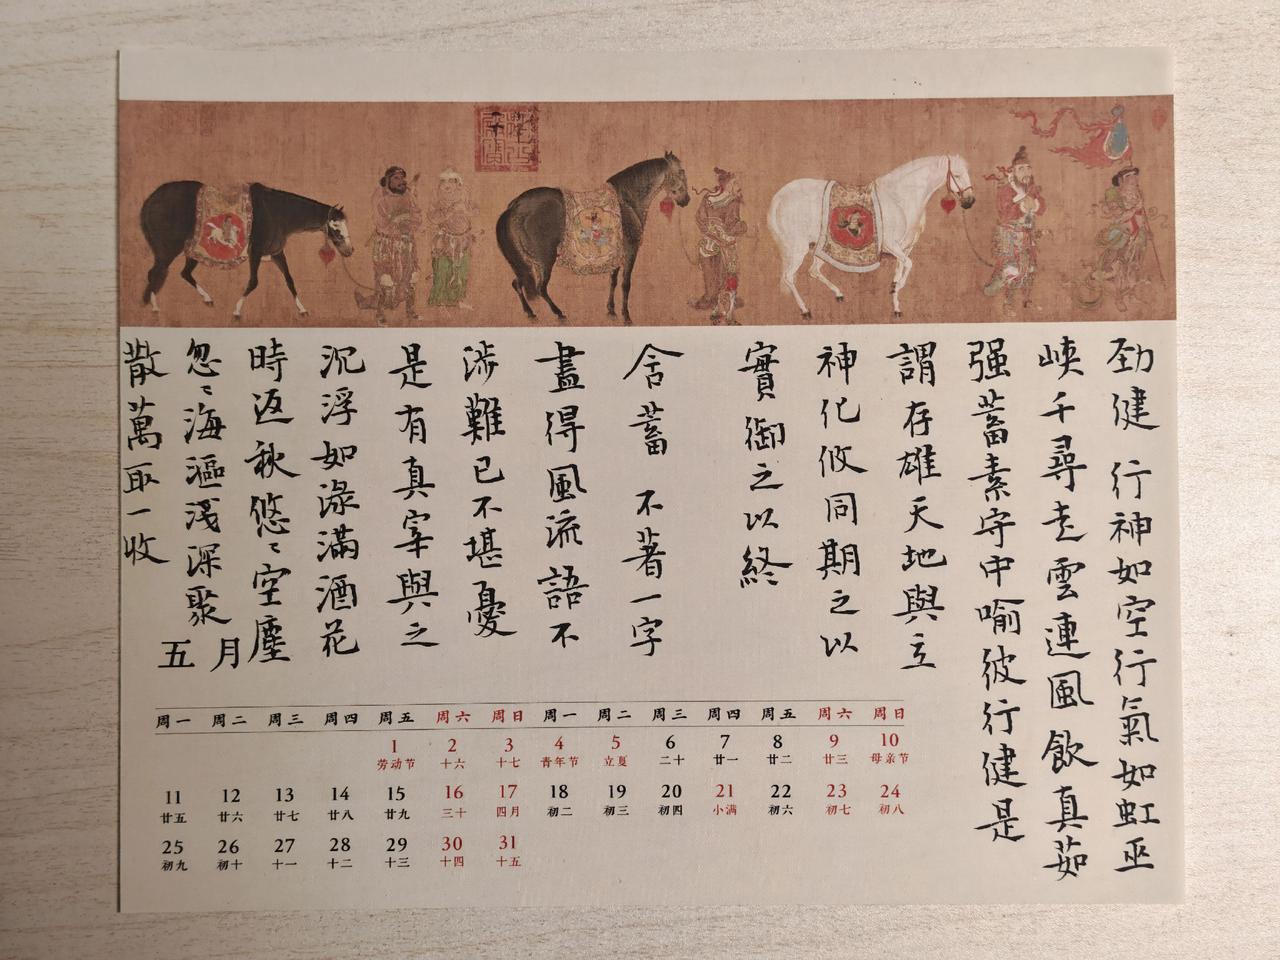 劲健 行神如空行氣如虹巫
峽千尋走雲連風飲真茹
强蓄素守中喻彼行健是
謂存雄天地與立
神化攸同期之以
實御之以終
含蓄 不著一字
盡得風流語不
涉難已不堪憂
是有真宰與之
沉浮如渌滿酒花
時返秋悠〻空塵
忽〻海漚淺深聚
散萬取一收
五月
周一 周二 周三 周四 周五 周六 周日 周一 周二 周三 周四 周五 周六 周日
1 2 3 4 5 6 7 8 9 10
劳动节 十六 十七 青年节 立夏 二十 廿一 廿二 廿三 母亲节
11 12 13 14 15 16 17 18 19 20 21 22 23 24
廿五 廿六 廿七 廿八 廿九 三十 四月 初二 初三 初四 小满 初六 初七 初八
25 26 27 28 29 30 31
初九 初十 十一 十二 十三 十四 十五